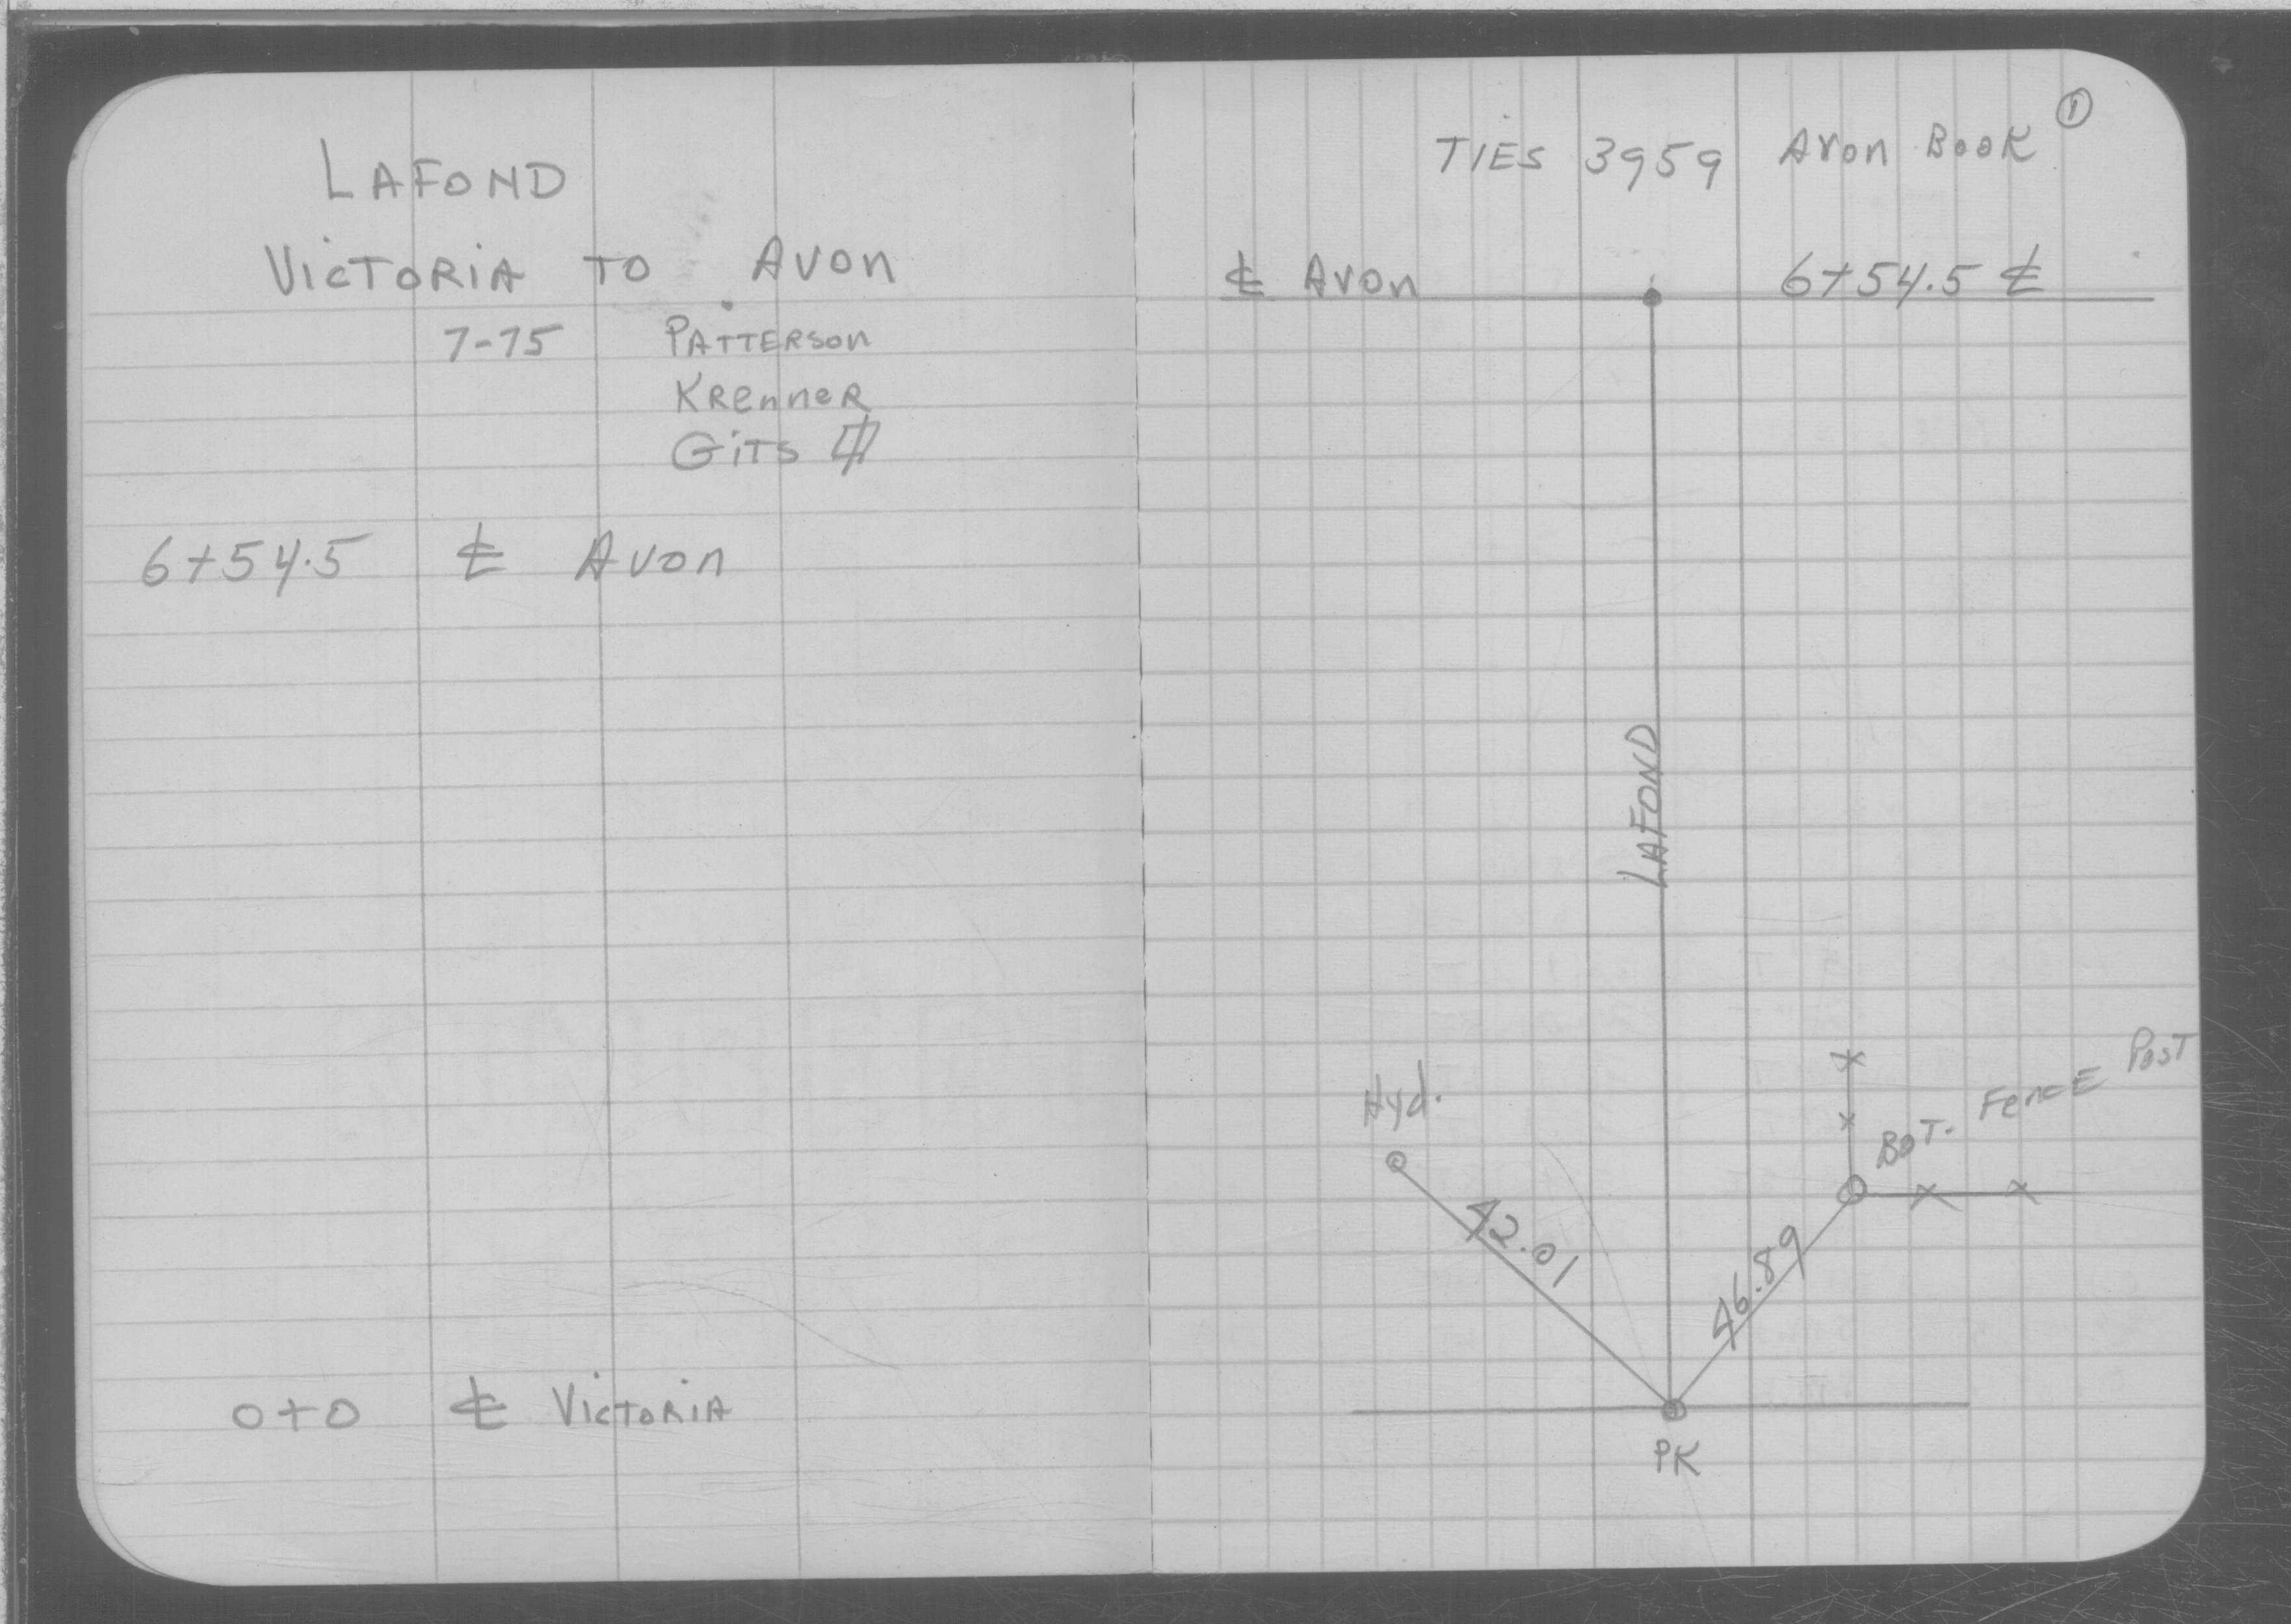 LAFOND
VICTORIA TO AVON
7-75 PATTERSON
KRENNER
GITS
6+54.5 ℄ AVON
0+0 ℄ VICTORIA
①
TIES 3959 AVON BOOK
℄ AVON 6+54.5 ℄
LAFOND
Hyd.
BOT. FENCE POST
42.01
46.89
PK